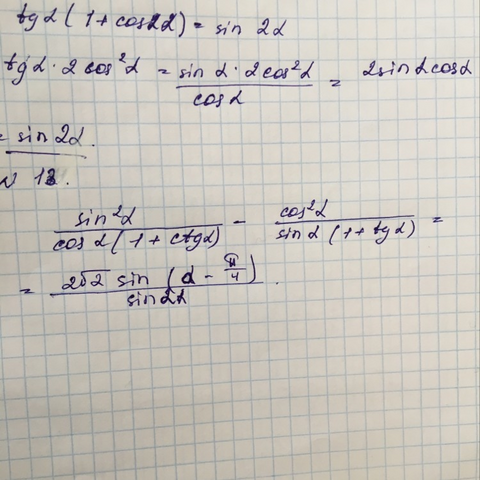 tg α (1 + cos 2α) = sin 2α
tg α · 2 cos²α = sin α · 2cos²α / cos α = 2 sin α cos α
= sin 2α.
N 13.
sin²α / cos α (1 + ctg α) − cos²α / sin α (1 + tg α) =
= 2√2 sin (α − π/4) / sin 2α .